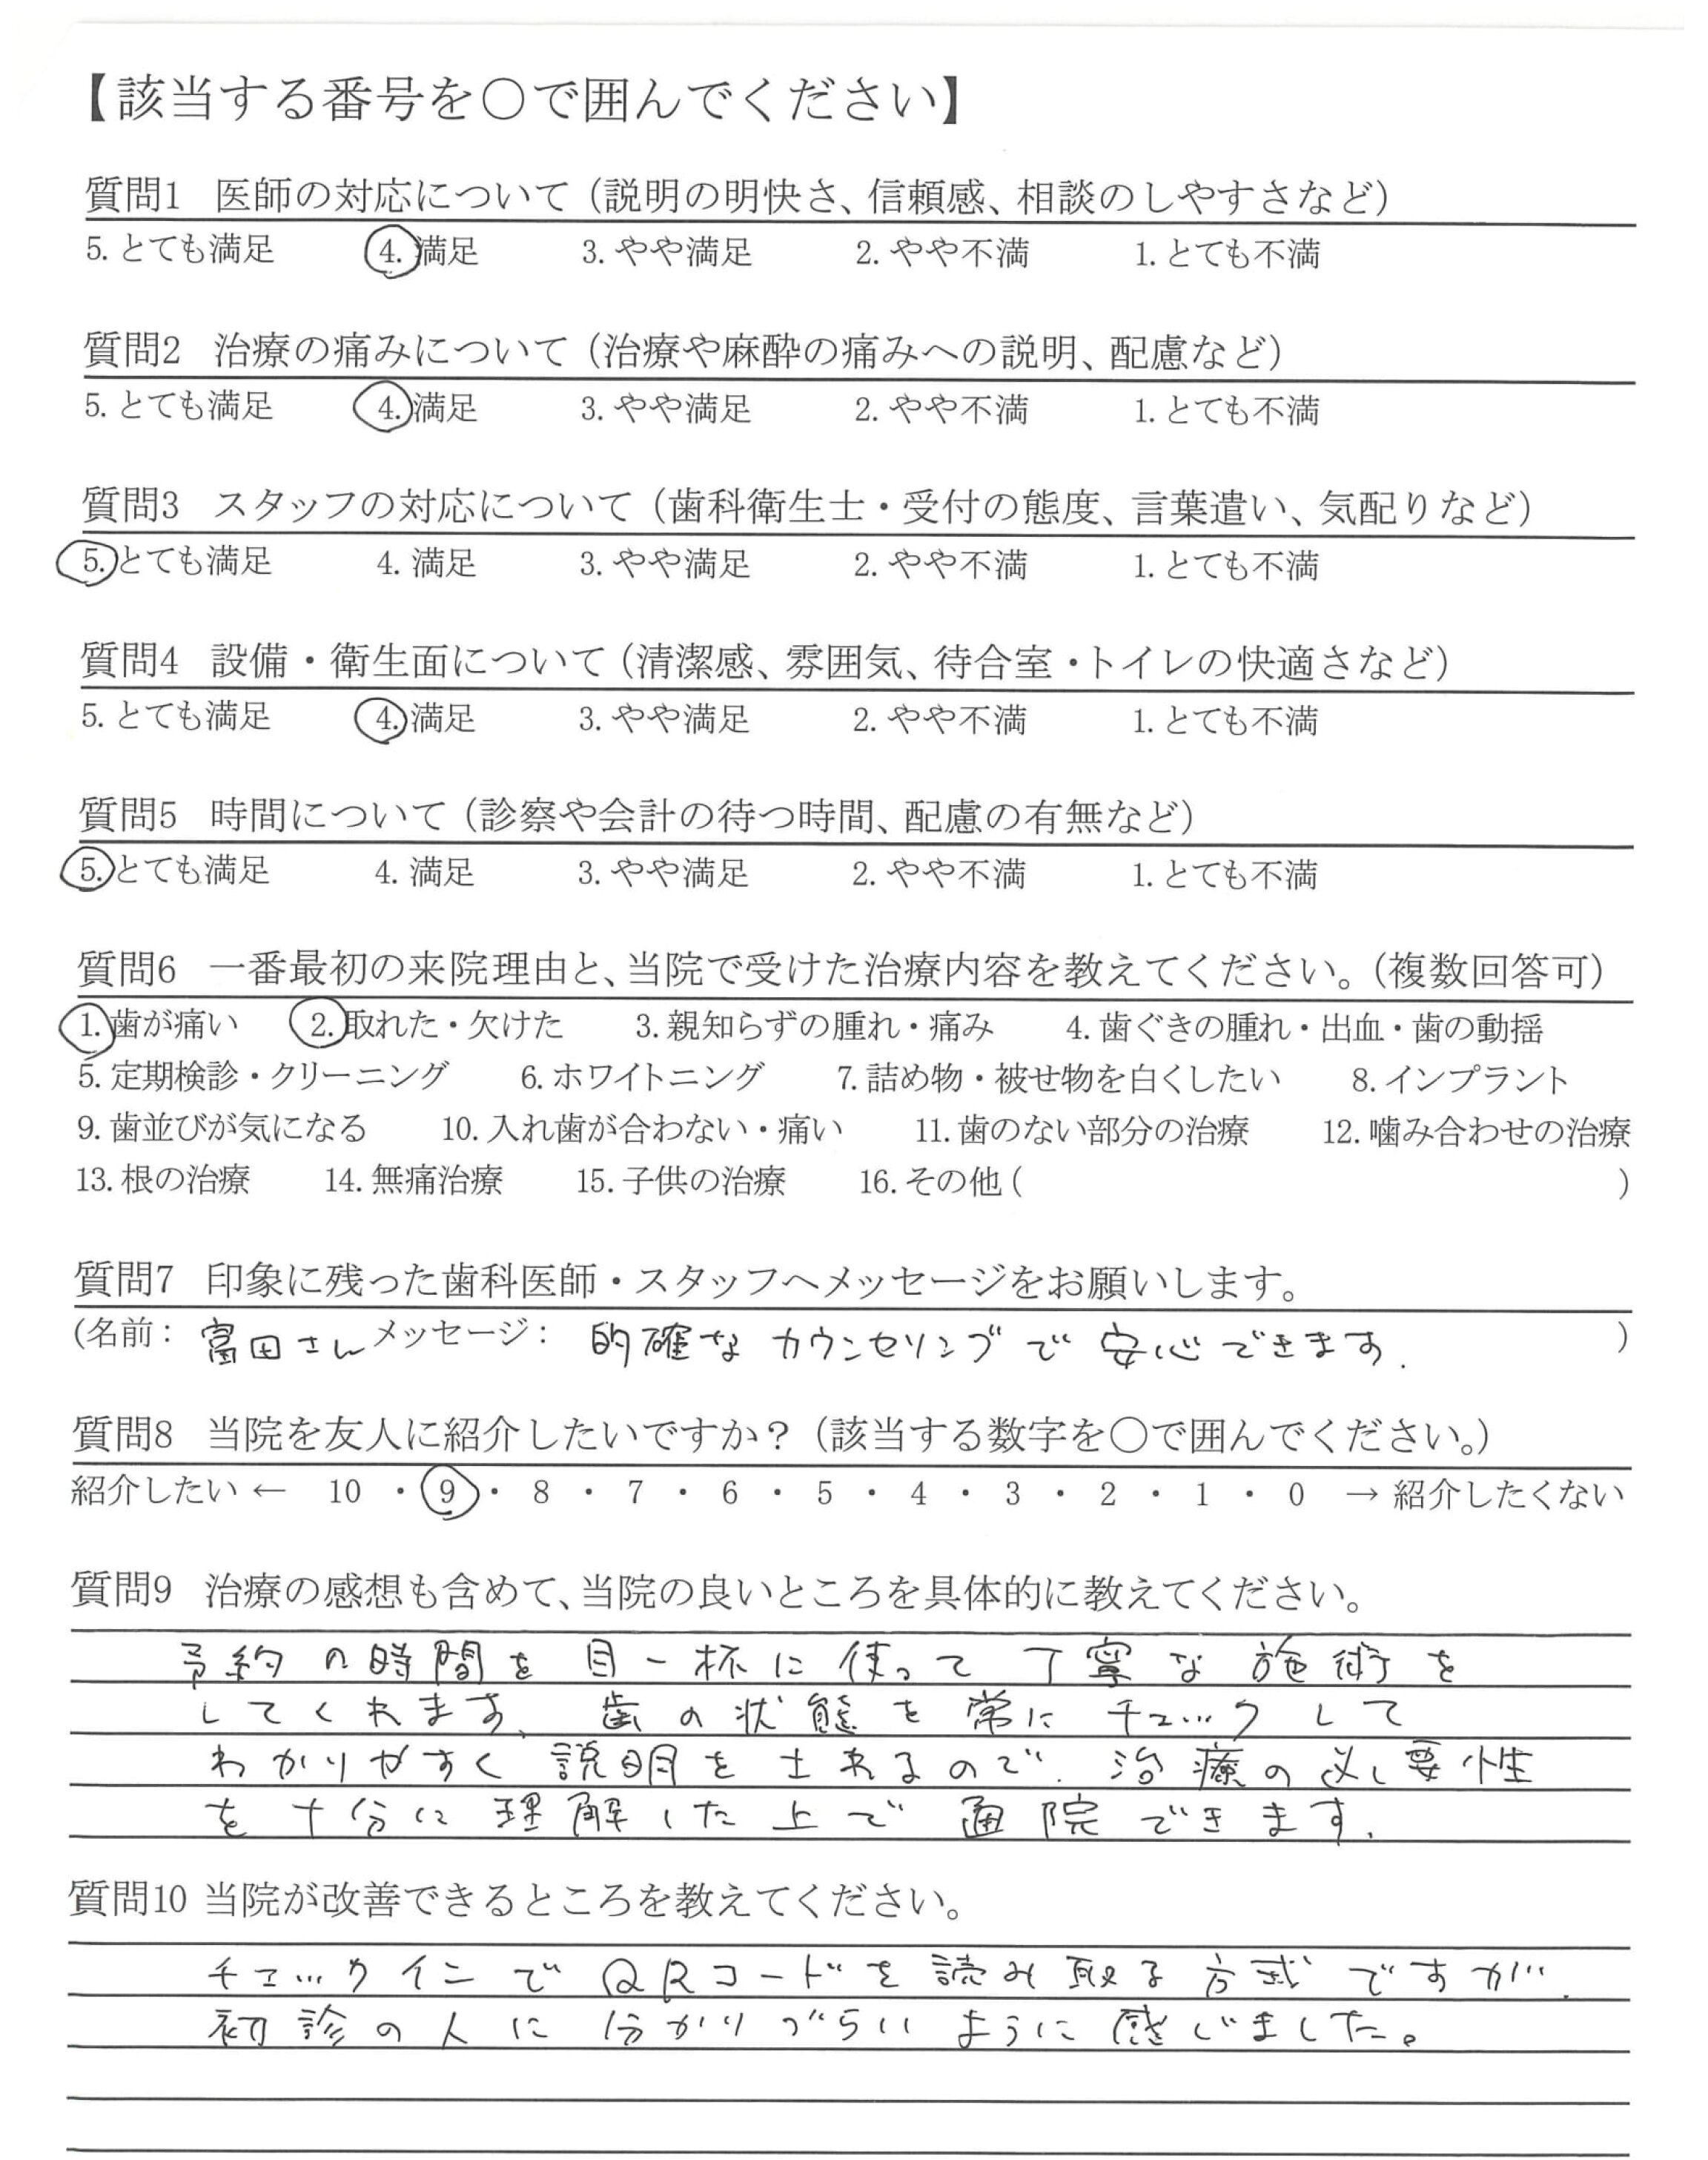 【該当する番号を〇で囲んでください】
質問1 医師の対応について（説明の明快さ、信頼感、相談のしやすさなど）
5. とても満足 4. 満足 3. やや満足 2. やや不満 1. とても不満
質問2 治療の痛みについて（治療や麻酔の痛みへの説明、配慮など）
5. とても満足 4. 満足 3. やや満足 2. やや不満 1. とても不満
質問3 スタッフの対応について（歯科衛生士・受付の態度、言葉遣い、気配りなど）
5. とても満足 4. 満足 3. やや満足 2. やや不満 1. とても不満
質問4 設備・衛生面について（清潔感、雰囲気、待合室・トイレの快適さなど）
5. とても満足 4. 満足 3. やや満足 2. やや不満 1. とても不満
質問5 時間について（診察や会計の待つ時間、配慮の有無など）
5. とても満足 4. 満足 3. やや満足 2. やや不満 1. とても不満
質問6 一番最初の来院理由と、当院で受けた治療内容を教えてください。（複数回答可）
1. 歯が痛い 2. 取れた・欠けた 3. 親知らずの腫れ・痛み 4. 歯ぐきの腫れ・出血・歯の動揺
5. 定期検診・クリーニング 6. ホワイトニング 7. 詰め物・被せ物を白くしたい 8. インプラント
9. 歯並びが気になる 10. 入れ歯が合わない・痛い 11. 歯のない部分の治療 12. 噛み合わせの治療
13. 根の治療 14. 無痛治療 15. 子供の治療 16. その他 ( )
質問7 印象に残った歯科医師・スタッフへメッセージをお願いします。
(名前： 富田さん メッセージ： 的確な カウンセリングで 安心できます. )
質問8 当院を友人に紹介したいですか？（該当する数字を〇で囲んでください。）
紹介したい ← 10 ・ 9 ・ 8 ・ 7 ・ 6 ・ 5 ・ 4 ・ 3 ・ 2 ・ 1 ・ 0 → 紹介したくない
質問9 治療の感想も含めて、当院の良いところを具体的に教えてください。
予約の時間を目一杯に使って丁寧な施術を
してくれます、歯の状態を常にチェックして
わかりやすく説明を されるので、治療の必要性
を十分に理解した上で通院できます.
質問10 当院が改善できるところを教えてください。
チェックインでQRコードを読み取る方式ですが、
初診の人に分かりづらいように感じました。